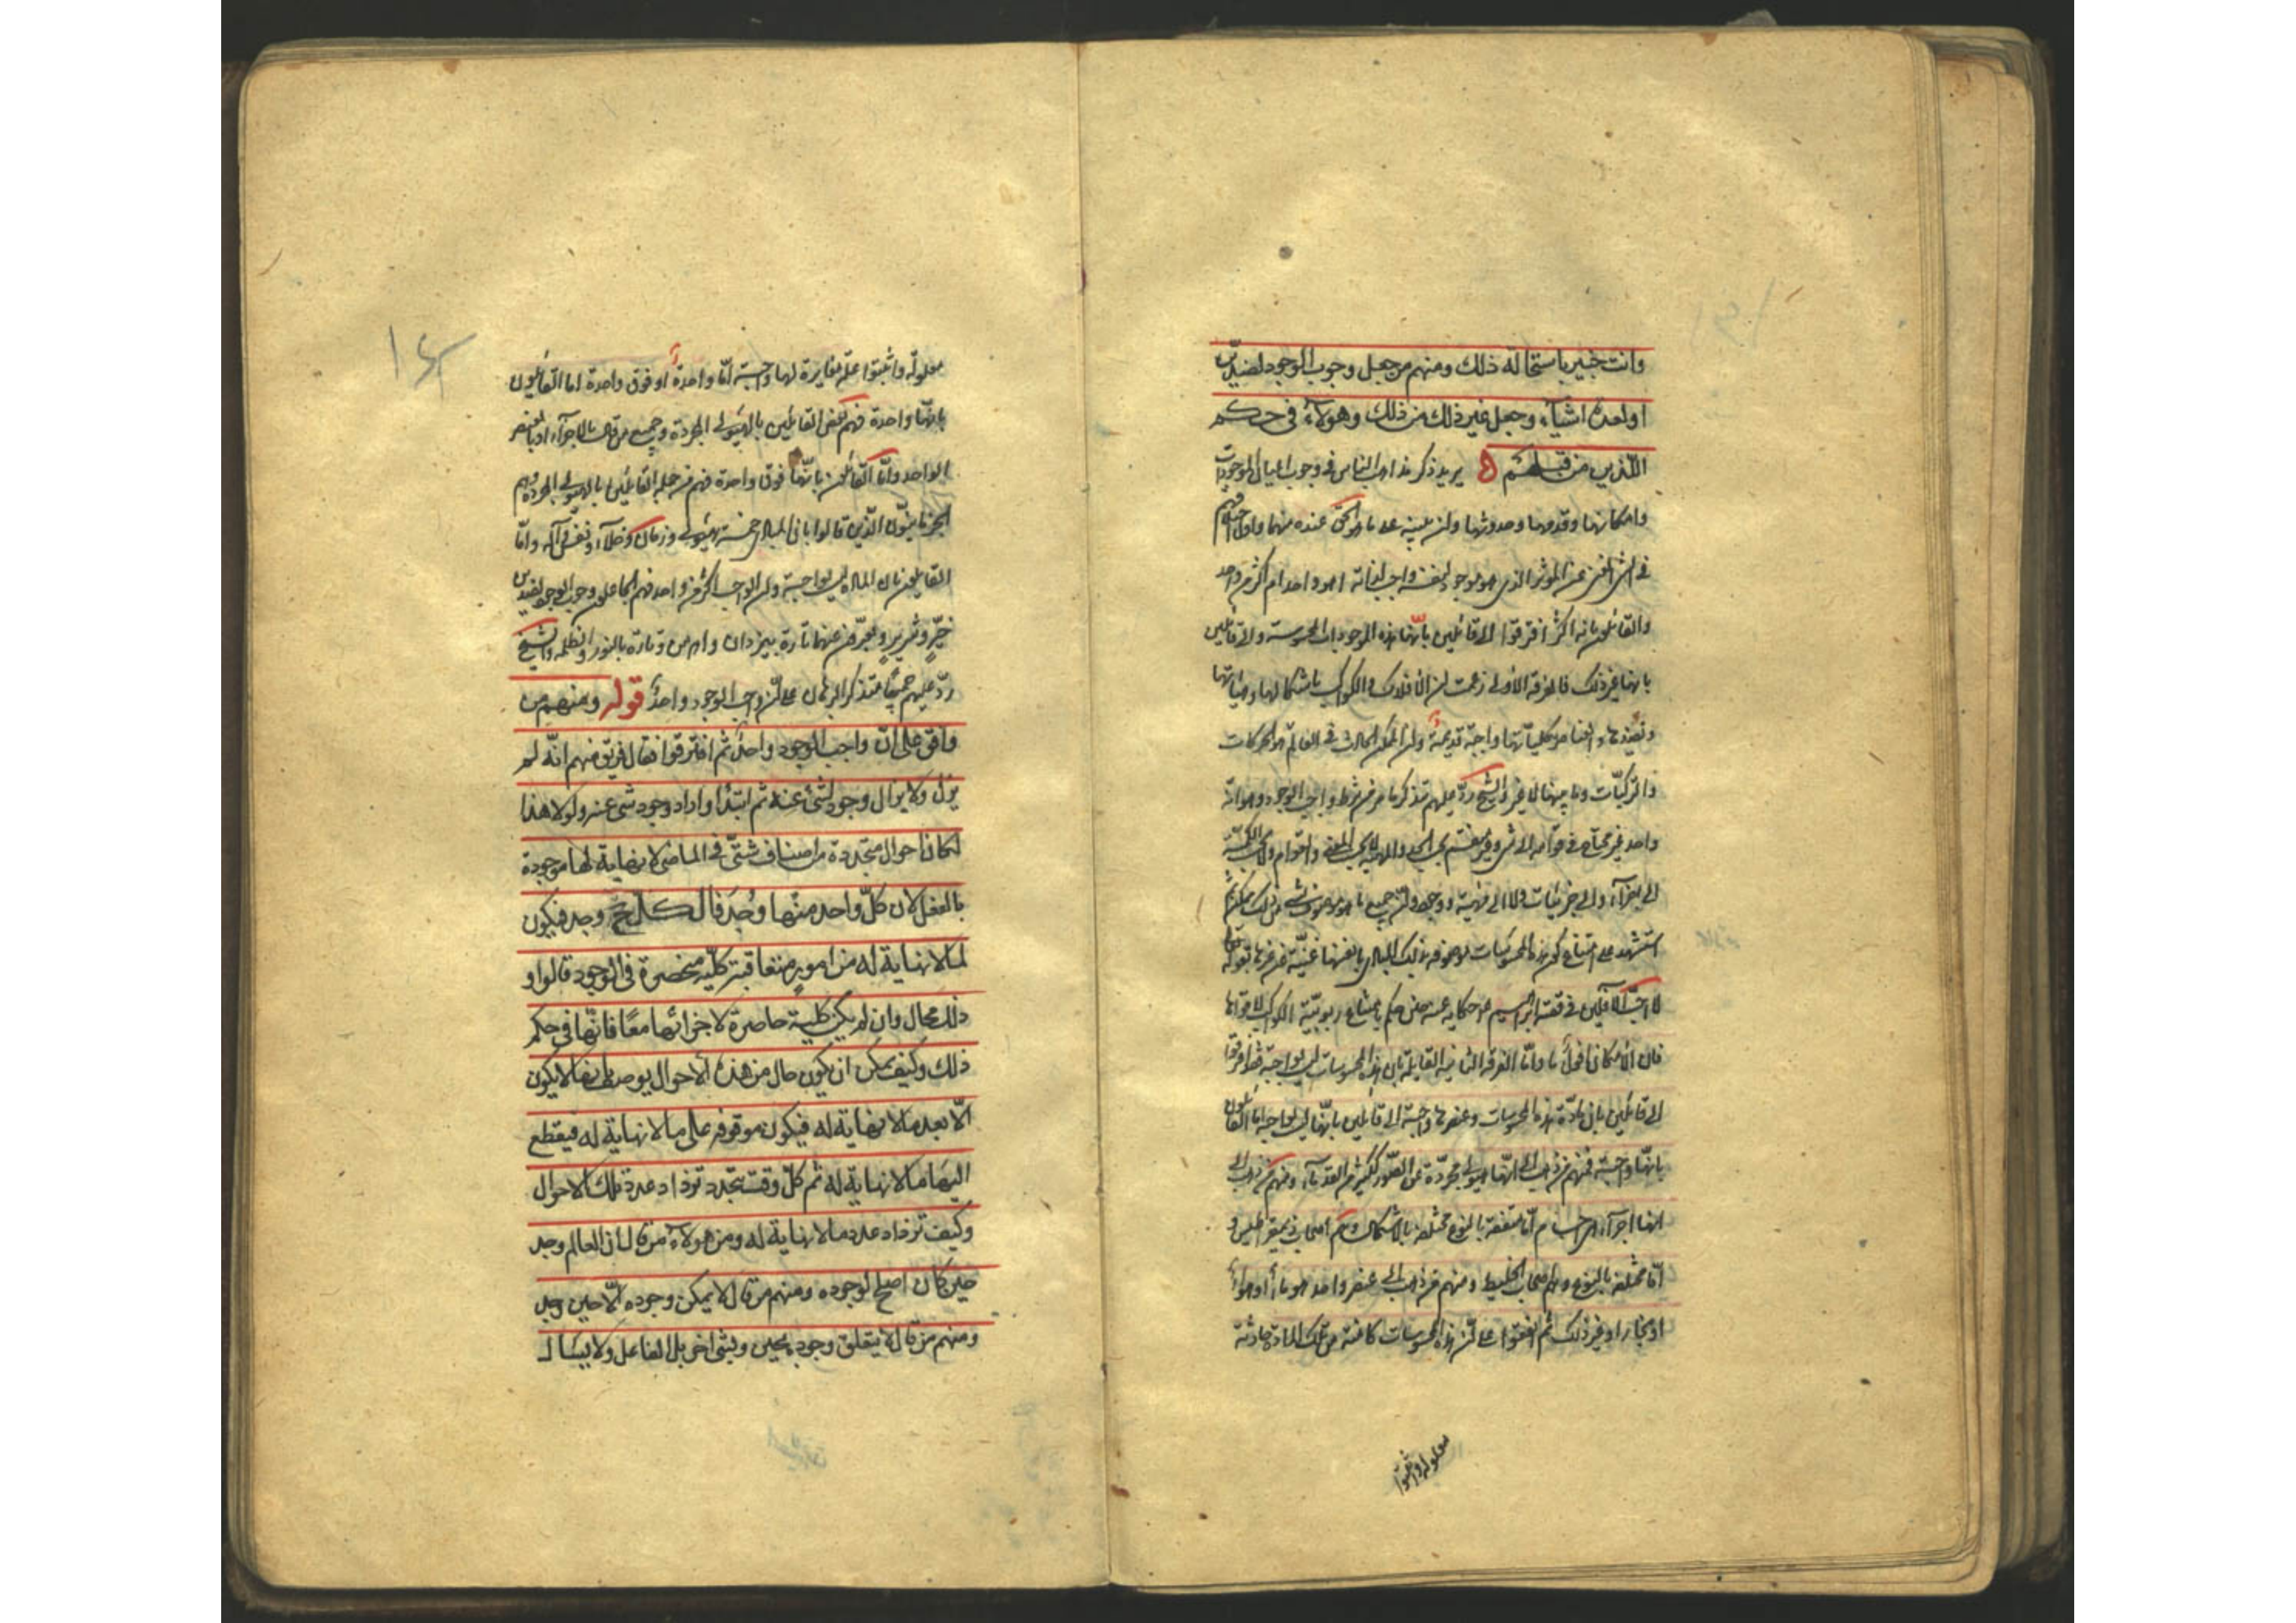 وانت خبير باستحالة ذلك ومنهم من جعل وجوب الوجود لضدين
او لعدة اشياء وجعل غير ذلك من ذلك وهولاء في حكم
الذين من قبلهم يريد ذكر مذاهب الناس في وجوب اعيان الموجودات
وامكانها وقدمها وحدوثها وان ينبه على ما هو الحق عنده منها
في عن المؤثر الذي هو موجود لنفسه واجب لذاته اهو واحد ام اكثر من واحد
والقائلون بانه اكثر افترقوا الى قائلين بانها هذه الموجودات المحسوسة والى قائلين
بانها غير ذلك فالفرقة الاولى زعمت ان الافلاك والكواكب باشكالها وهيآتها
ونضدها والعناصر بكلياتها واجبة قديمة وان الممكن الحادث في العالم هو الحركات
والتركيبات وما يتبعهما لا غير والشيخ رد عليهم بتذكر ما مر من شرط واجب الوجود وهو انه
واحد غير محتاج في قوامه الى شيء وغير منقسم بحسب الحد والمهية
الى اجزاء والى جزئيات ولا الى مهية ووجود وان جميع ما هو موصوف بشيء من ذلك ممكن ثم
استشهد على امتناع كون هذه المحسوسات موصوفة بذلك المبادي بانفسها غنية عن غيرها بقوله تعالى
لا احب الآفلين في قصة ابراهيم حكاية عنه حين حكم بامتناع ربوبية الكواكب لافولها
فان الامكان افول ما واما الفرقة الثانية القايلة بان هذه المحسوسات ليس بواجبة فقد افترقوا
الى قائلين بان مادة هذه المحسوسات وعنصرها واجبة الى قائلين بانها ليس بواجبة اما القائلون
بانها واجبة فمنهم من ذهب الى انها هيولى مجردة عن الصور ككثير من القدماء ومنهم من ذهب الى
انها اجزاء اجسام اما متفقة بالنوع مختلفة بالاشكال وهم اصحاب ذيمقراطيس و
اما مختلفة بالنوع وهم اصحاب الخليط ومنهم من ذهب الى عنصر واحد هو ماء او هواء
او بخار او غير ذلك ثم اتفقوا على ان هذه المحسوسات كائنة من تلك المادة حادثة
معلولة واثبتوا
معلولة واثبتوا علة مغايرة لها واجبة اما واحدة او فوق واحدة اما القائلون
بانها واحدة فهم بعض القائلين بالهيولى المجردة وجميع من قال بالاجزاء او بالعنصر
الواحد واما القائلون بانها فوق واحدة فهم من جملة القائلين بالهيولى المجردة وهم
الحرنانيون الذين قالوا بان المبادي خمسة هيولى وزمان وخلاء ونفس واله واما
القايلون بان المادة ليس بواجبة وان الواجب اكثر من واحد فهم الجاعلون وجوب الوجود لضدين
خير وشرير ويعبرون عنهما تارة بيزدان واهرمن وتارة بالنور والظلمة والشيخ
رد عليهم جميعا بتذكر البرهان على ان واجب الوجود واحد قوله ومنهم من
وافق على ان واجب الوجود واحد ثم افترقوا فقال فريق منهم انه لم
يزل ولا يزال وجود لشئ عنه ثم ابتدا واراد وجود شئ عنه ولولا هذا
لكان احوال متجددة من اصناف شتى في الماضى لا نهاية لها موجودة
بالفعل لان كل واحد منها وجد فالكل وجد فيكون
لما لا نهاية له من امور متعاقبة كلية منحصرة في الوجود قالوا و
ذلك محال وان لم يكن كلية حاصرة لاجزائها معا فانها في حكم
ذلك وكيف يمكن ان يكون حال من هذه الاحوال يوصف بانها لا يكون
الا بعد ما لا نهاية له فيكون موقوفة على ما لا نهاية له فيقطع
اليها ما لا نهاية له ثم كل وقت يتجدد تزداد عدد تلك الاحوال
وكيف تزداد عدد ما لا نهاية له ومن هولاء من قال ان العالم وجد
حين كان اصلح لوجوده ومنهم من قال لا يمكن وجوده الا حين وجد
ومنهم من قال لا يتعلق وجوده بحين وبشئ اخر بل الفاعل ولا يسال